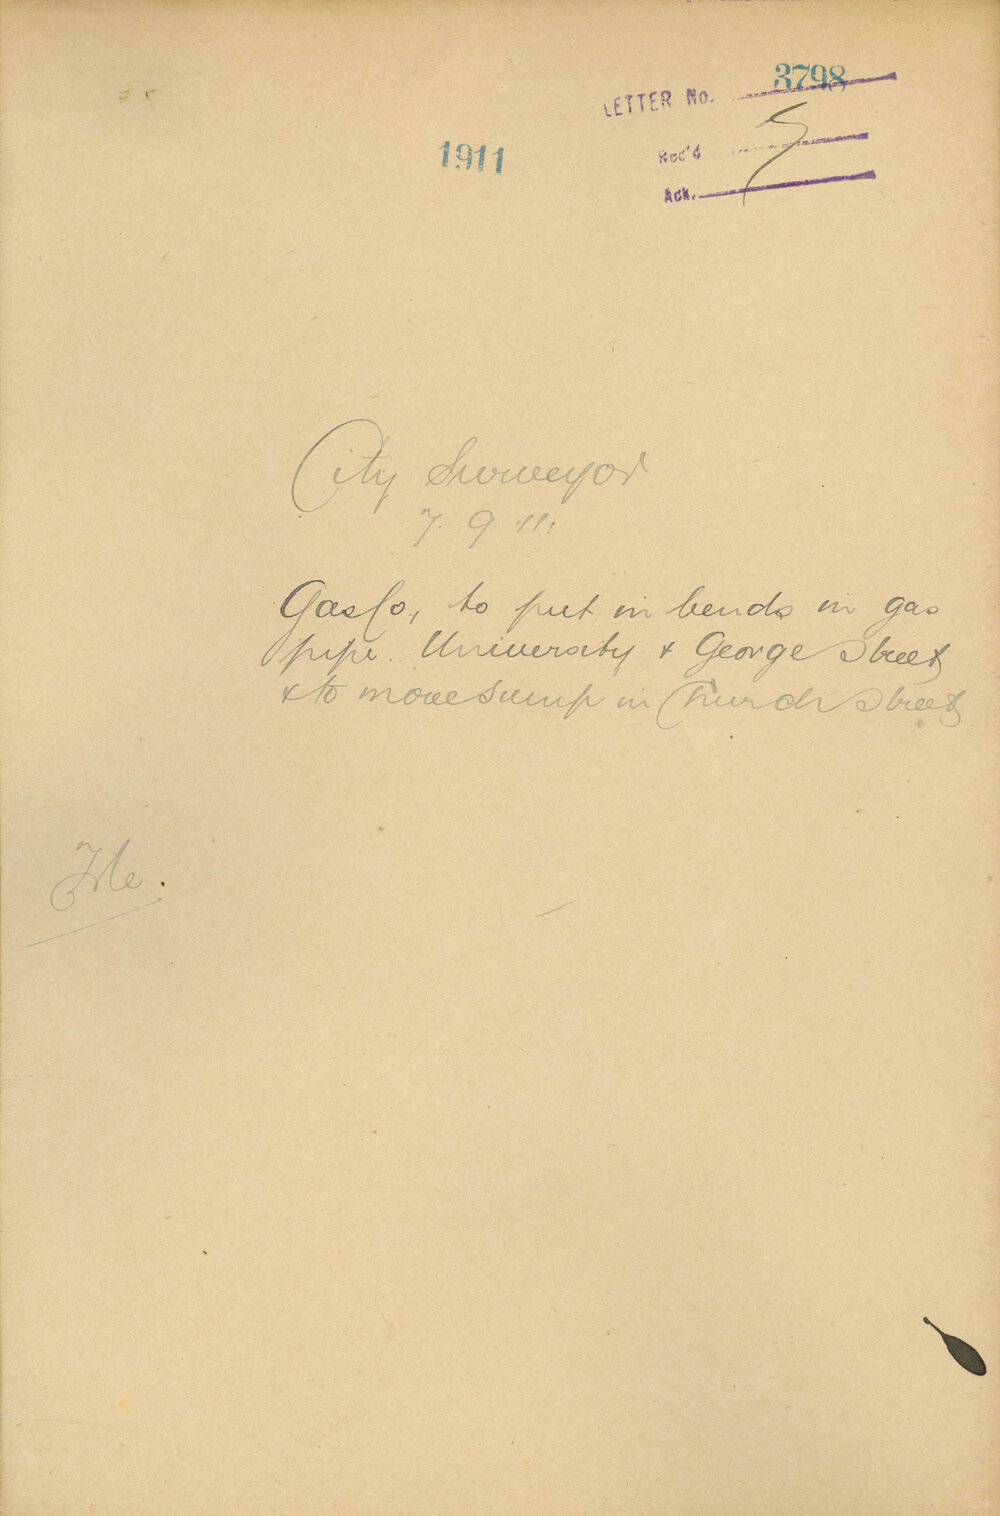 LETTER No. 3798
1911
Rec'd
Ack.
City Surveyor
7. 9 11.
Gas Co, to put in bends in gas
pipe. University & George Street
& to move sump in Church Street
File.